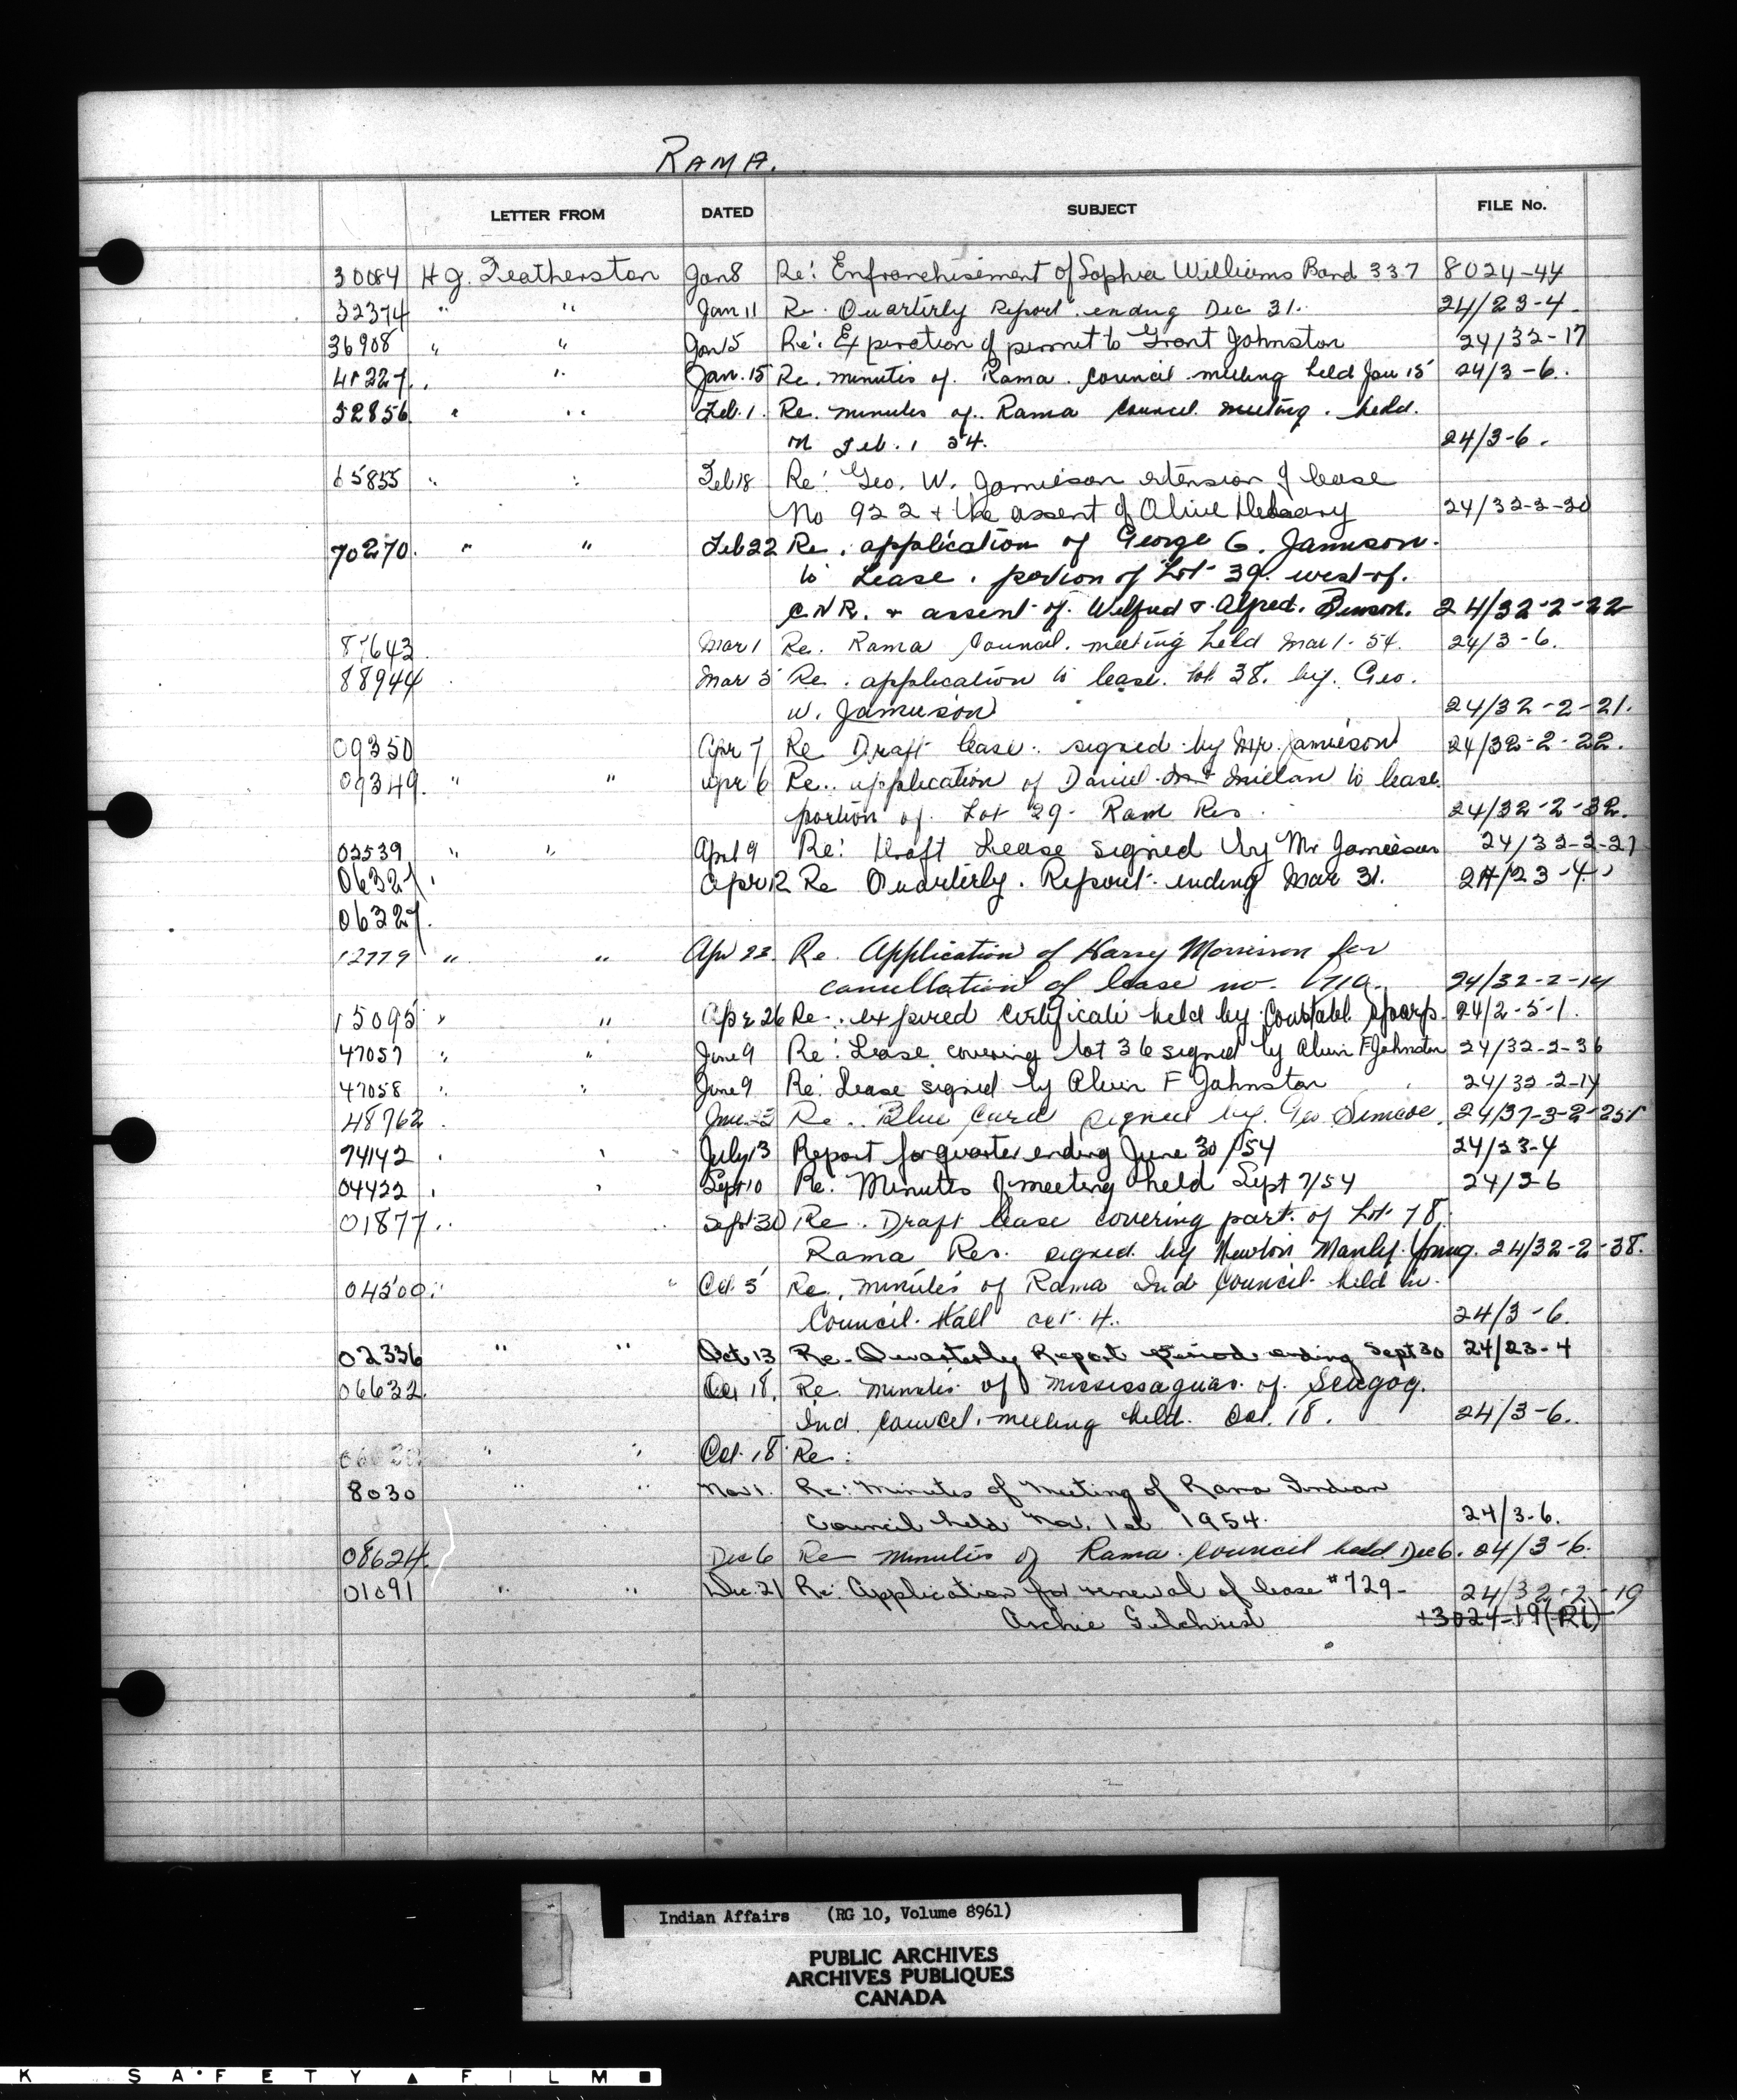 RAMA.
LETTER FROM DATED SUBJECT FILE No.
30084 H G. Featherston Jan 8 Re: Enfranchisement of Sophia Williams Band 337 8024-44
32374 " " Jan 11 Re. Quarterly Report ending Dec 31. 24/23-4.
36908 " " Jan 15 Re: Expiration of permit to Grant Johnston 24/32-17
" " Jan. 15 Re. minutes of. Rama. Council meeting held Jan 15 24/3-6.
52856 " " Feb. 1. Re. minutes of. Rama Council meeting. held.
on Feb. 1 54. 24/3-6.
65855 " " Feb 18 Re: Geo. W. Jamieson extension of lease
No 922 + the assent of Olive 24/32-2-20
70270. " " Feb 22 Re. application of George G. Jamieson.
to Lease. portion of Lot 39. west of.
C.N.R. + assent of. Wilfred & Alfred. Benson. 24/32-2-22
87643. Mar 1 Re. Rama Council. meeting held Mar 1. 54. 24/3-6.
88944 Mar 5 Re. application to lease. lot 38. by. Geo.
W. Jamieson 24/32-2-21.
09350 Apr 7 Re Draft lease. signed by Mr. Jamieson 24/32-2-22.
09349. " " Apr 6 Re.. application of Daniel to lease
portion of. Lot 29. Ram Res. 24/32-2-32.
02539 " " April 9 Re: Draft Lease signed by Mr Jamieson 24/32-2-21
06327 " Apr 12 Re Quarterly. Report. ending Mar 31. 24/23-4.
06327.
12779 " " Apr 22. Re. Application of Harry Morrison for
cancellation of lease no. 24/32-2-14
15095 " " Apr 26 Re.. expired certificate held by Constable 24/2-5-1.
47057 " " June 9 Re: Lease covering lot 36 signed by Alvin F Johnston 24/32-2-36
47058 " " June 9 Re: Lease signed by Alvin F Johnston 24/32-2-14
48762. Re.. Blue Card signed by. Geo Simcoe. 24/37-3-2-251
74142 " " July 13 Report for quarter ending June 30/54 24/23-4
04422 " " Sept 10 Re: Minutes of meeting held Sept 7/54 24/3-6
01877 " " Sept 30 Re. Draft lease covering part. of Lot 78.
Rama Res. signed by Newton Manly Young. 24/32-2-38.
04500. " " Oct. 5 Re. minutes of Rama Ind Council held in.
Council. Hall Oct. 4. 24/3-6.
02336 " " Oct 13 Re- Quarterly Report Period ending Sept 30 24/23-4
06632. Oct 18. Re. minutes of Mississaguas. of. Scugog.
Ind. Council. meeting held. Oct. 18. 24/3-6.
" " Oct. 18 Re:
8030 " " Nov 1. Re: Minutes of Meeting of Rama Indian
Council held Nov. 1st 1954. 24/3-6.
08624. Dec 6 Re minutes of Rama. Council held Dec 6. 24/3-6.
01091 " " Dec. 21 Re: Application for renewal of lease #729-
24/32-2-19
Archie Gilchrist +3024-19(R1)
Indian Affairs (RG 10, Volume 8961)
PUBLIC ARCHIVES
ARCHIVES PUBLIQUES
CANADA
K SAFETY ▲ FILM ■